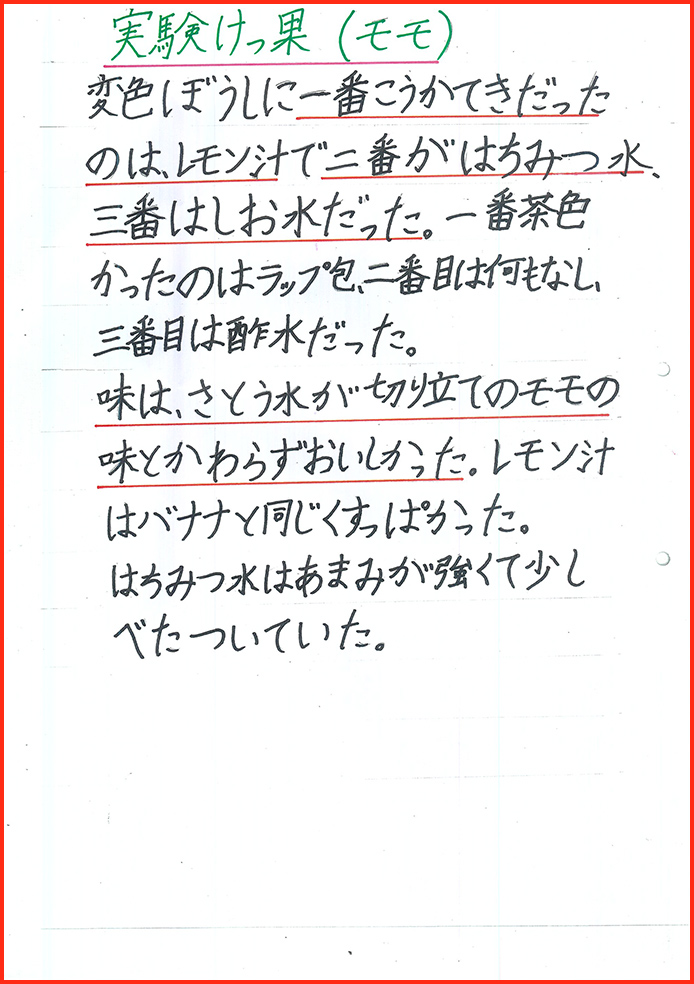 実験けっ果（モモ）
変色ぼうしに一番こうかてきだった
のは、レモン汁で二番がはちみつ水、
三番はしお水だった。一番茶色
かったのはラップ包、二番目は何もなし、
三番目は酢水だった。
味は、さとう水が切り立てのモモの
味とかわらずおいしかった。レモン汁
はバナナと同じくすっぱかった。
はちみつ水はあまみが強くて少し
べたついていた。